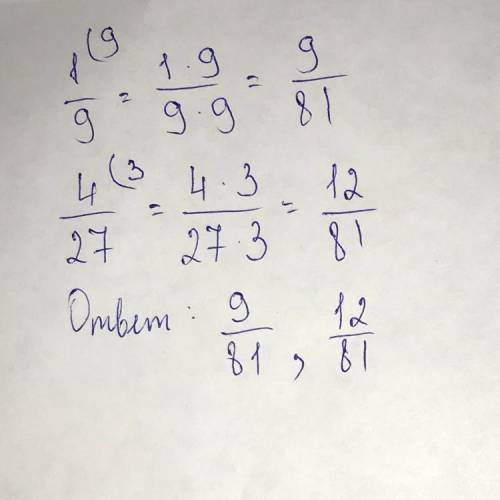 1/9 (9 = 1·9/9·9 = 9/81
4/27 (3 = 4·3/27·3 = 12/81
Ответ: 9/81, 12/81